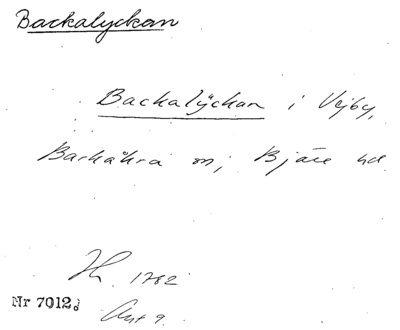 Backalyckan
Backalÿckan i Vejby,
Barkåkra sn; Bjäre hd
Jh. 1782
Nr 7012.
Akt 9.